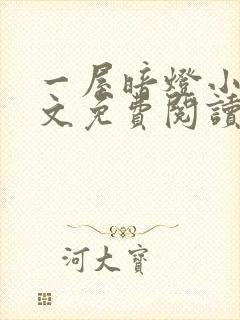 一屋暗燈小
文免費閱讀
河大寶